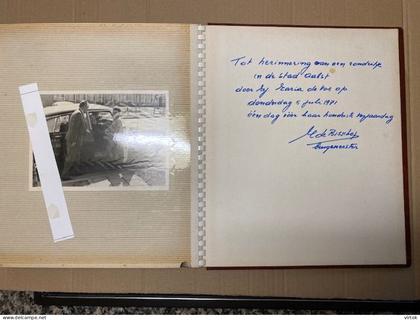 Tot herinnering van een rondritje
in de stad Aalst
door Maria de Vos op
donderdag 5 juli 1971
één dag vóór haar honderdste verjaardag
M. de Bisschop
burgemeester